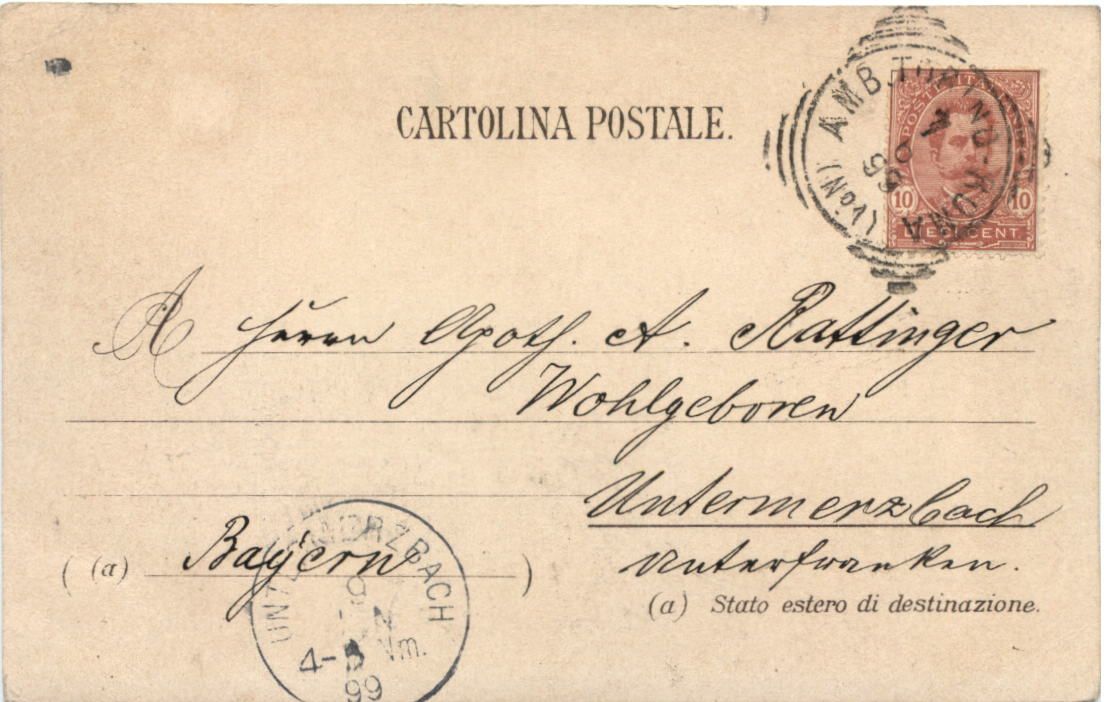 CARTOLINA POSTALE.
AMB. TORINO-ROMA (VONI)
POSTE ITALIANE
10 10
DIECI CENT.
A Herrn Apoth. A. Rattinger
Wohlgeboren
Untermerzbach
(a) Bayern
Unterfranken.
(a) Stato estero di destinazione.
UNTERMERZBACH
4-5 Nm.
99